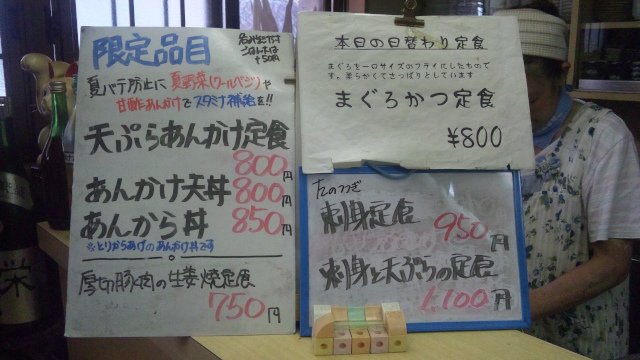 限定品目
名物とり丼
ごはん大は
+50円
夏バテ防止に夏野菜(クールベジ)や
甘酢あんかけでスタミナ補給を!!
天ぷらあんかけ定食
800円
あんかけ天丼 800円
あんから丼 850円
※とりからあげのあんかけ丼です
厚切豚肉の生姜焼定食
750円
本日の日替わり定食
まぐろを一口サイズのフライにしたもので
す。柔らかくてさっぱりとしています
まぐろかつ定食
¥800
たのつぎ
刺身定食 950円
刺身と天ぷらの定食
1,100円
栄